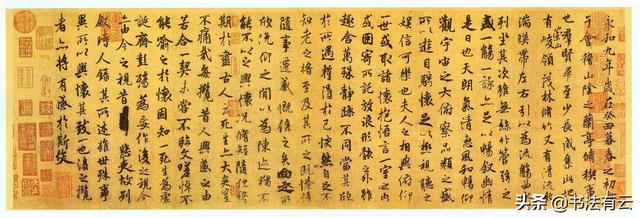 永和九年歲在癸丑暮春之初會
于會稽山陰之蘭亭脩稧事
也羣賢畢至少長咸集此地
有崇山峻領茂林脩竹又有清流激
湍暎帶左右引以為流觴曲水
列坐其次雖無絲竹管弦之
盛一觴一詠亦足以暢敘幽情
是日也天朗氣清惠風和暢仰
觀宇宙之大俯察品類之盛
所以遊目騁懷足以極視聽之
娛信可樂也夫人之相與俯仰
一世或取諸懷抱悟言一室之內
或因寄所託放浪形骸之外雖
趣舍萬殊靜躁不同當其欣
於所遇暫得於己快然自足不
知老之將至及其所之既惓情
隨事遷感慨係之矣向之所
欣俛仰之間以為陳迹猶不
能不以之興懷況脩短隨化終
期於盡古人云死生亦大矣豈
不痛哉每攬昔人興感之由
若合一契未嘗不臨文嗟悼不
能喻之於懷固知一死生為虛
誕齊彭殤為妄作後之視今
亦由今之視昔悲夫故列
敘時人錄其所述雖世殊事
異所以興懷其致一也後之攬
者亦將有感於斯文
头条 @书法有云